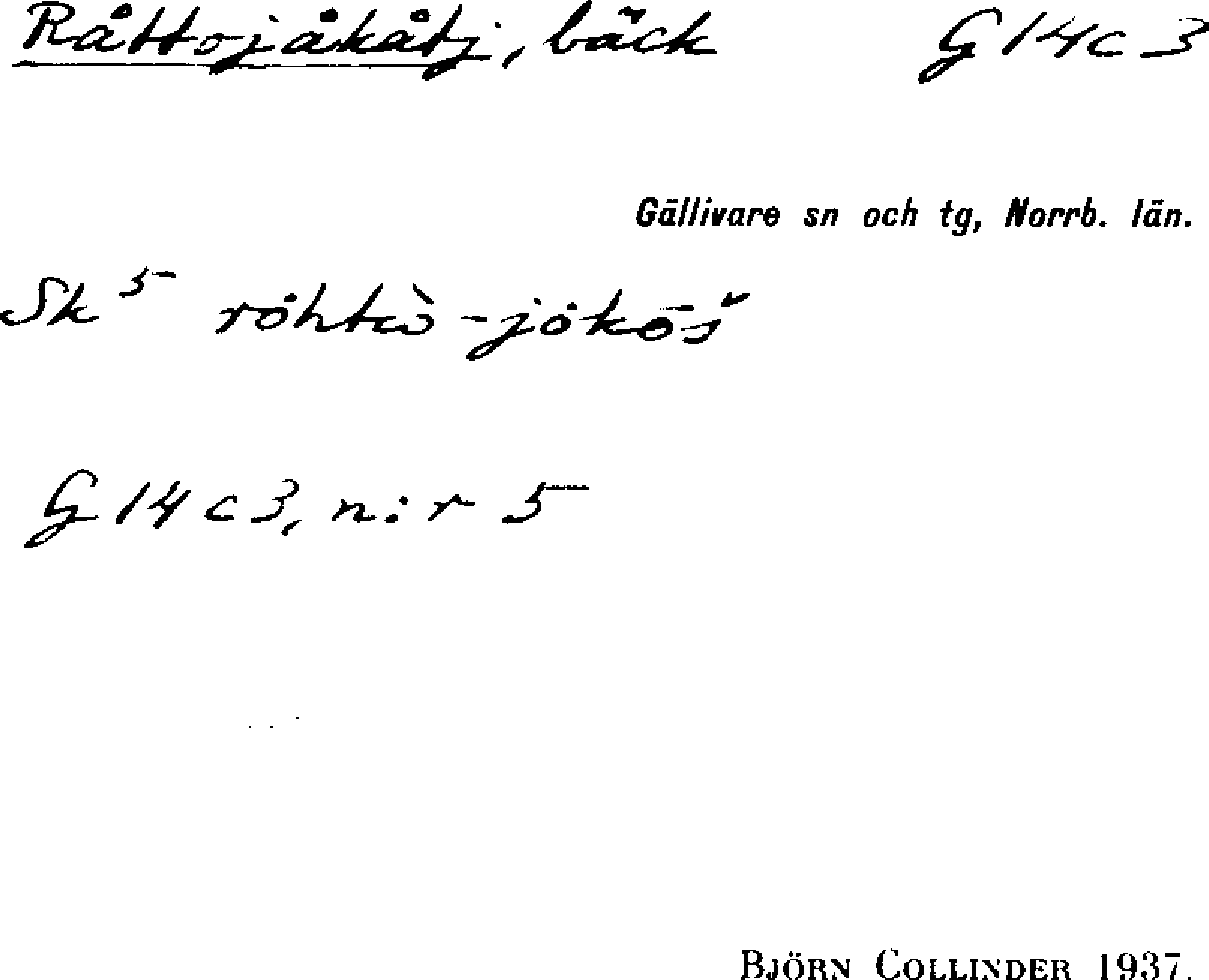 Råttojåkåtj, bäck G14c3
Gällivare sn och tg, Norrb. län.
Sk⁵ rȯhtɷ̀-jȯkɵ̄š
G14c3, n:r 5
BJÖRN COLLINDER 1937.